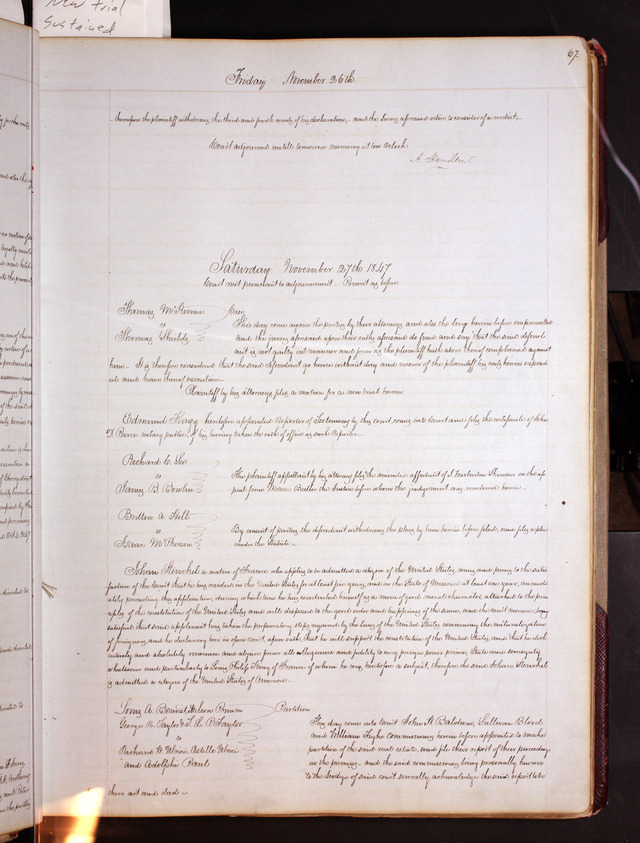 New trial
Sustained
67.
Friday November 26th
thereupon the plaintiff withdraws the third and fourth counts of his declaration, and the Jury aforesaid retire to consider of a verdict.
Court adjourned untill tomorrow morning at ten oclock
A Hamilton
Saturday November 27th 1847
Court met pursuant to adjournment. Present as before
Thomas
vs
Thomas Shields
Case
This day come again the parties by their attorneys and also the Jury herein before empannelled
and the jurors aforesaid upon their oaths aforesaid do find and say that the said defend-
ant is not guilty in manner and form as the plaintiff hath above thereof complained against
him. It is therefore considered that the said defendant go hence without day and recover of the plaintiff his costs herein expend-
ed and have thereof execution.
Plaintiff by his attorney files a motion for a new trial herein
Edmund heretofore appointed Reporter of Testimony by this court comes into Court and files the certificate of John
D. Pierce notary public, of his having taken the oath of office as such Reporter.
Richard C.
vs
B
The plaintiff appellant by his attorney files the amended affidavit of on the ap-
peal from Butler the Justice before whom the judgement was rendered herein.
Britton A Hill
vs
Isaac
By consent of parties the defendant withdraws the pleas by him herein before filed, and files a plea
under the Statute.
Johan Herschel a native of France who applies to be admitted a citizen of the United States, comes and proves to the satis-
faction of the Court that he has resided in the United States for at least five years, and in the State of Missouri at least one year, immedi-
ately preceding this application, during which time he has conducted himself as a man of good moral character, attached to the prin-
ciples of the constitution of the United States and well disposed to the good order and happiness of the same, and the court moreover being
satisfied that said applicant has taken the preparatory steps required by the laws of the United States concerning the naturalization
of foreigners, and he declaring here in open court, upon oath, that he will support the constitution of the United States, and that he doth
entirely and absolutely renounce and abjure forever all allegiance and fidelity to every foreign power prince, State and sovereignty
whatsoever and particularly to Louis Philip King of France of whom he was heretofore a subject, therefore the said Johan Herschel
is admitted a citizen of the United States of America.
A Benoist Brown
George R. Taylor & Taylor
vs
Richard
and Adolphe Paul
Partition
This day come into Court John A Baldwin, Sullivan Blood
and William commissioners herein before appointed to make
partition of the said real estate, and file their report of their proceedings
in the premises. and the said commissioners being personally known
to the Judge of said court severally acknowledge the said report to be
their act and deed.